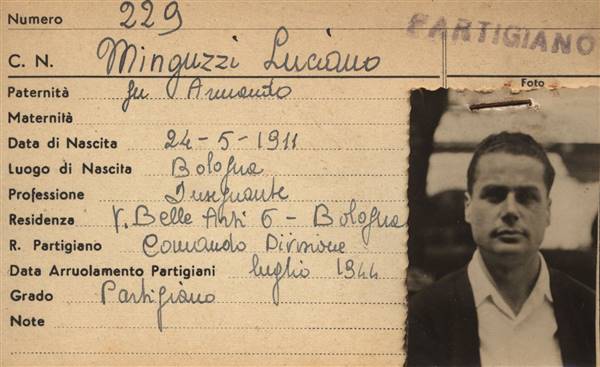 Numero 229
PARTIGIANO
C. N. Minguzzi Luciano
Foto
Paternità fu Armando
Maternità
Data di Nascita 24-5-1911
Luogo di Nascita Bologna
Professione Insegnante
Residenza V. Belle Arti 6 - Bologna
R. Partigiano Comando Divisione
Data Arruolamento Partigiani luglio 1944
Grado Partigiano
Note